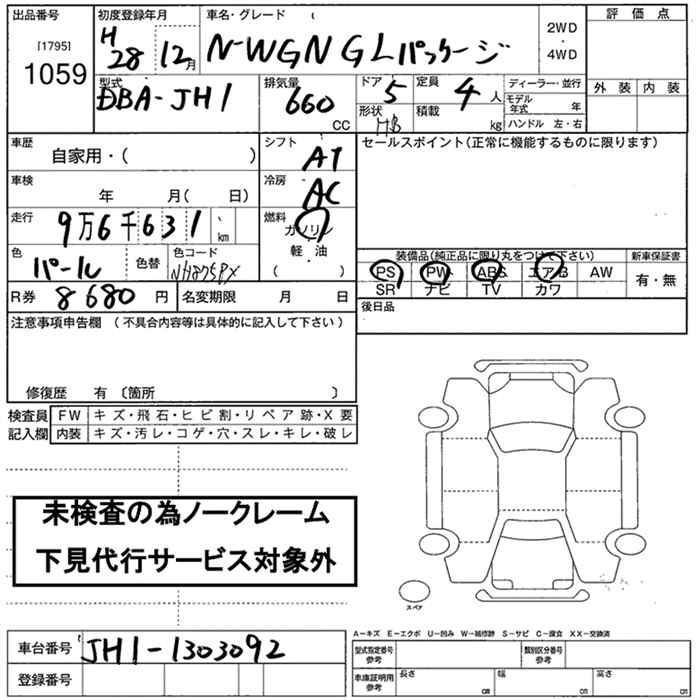 出品番号 初度登録年月 車名・グレード 評価点
[1795]
1059
H28 12月 N-WGN GLパッケージ 2WD・4WD
型式 排気量 ドア 定員 ディーラー・並行 外装 内装
DBA-JH1 660 CC 5 4人 モデル年式 年
形状 HB 積載 kg ハンドル 左・右
車歴 シフト セールスポイント(正常に機能するものに限ります)
自家用・( ) AT
車検 冷房
年 月( 日) AC
走行 燃料
9万6千631 km ガソリン
色 色替 色コード 軽・油
パール ( )
装備品(純正品に限り丸をつけて下さい) 新車保証書
PS PW ABS エアB AW 有・無
SR ナビ TV カワ
R券 8680円 名変期限 月 日 後日品
注意事項申告欄 (不具合内容等は具体的に記入して下さい)
修復歴 有 〔箇所 〕
検査員 FW キズ・飛石・ヒビ割・リペア跡・X要
記入欄 内装 キズ・汚レ・コゲ・穴・スレ・キレ・破レ
未検査の為ノークレーム
下見代行サービス対象外
スペア
A−キズ E−エクボ U−凹み W−補修跡 S−サビ C−腐食 XX−交換済
車台番号 JH1-1303092
型式指定番号 参考 類別区分番号 参考
登録番号 車庫証明用 参考 長さ cm 幅 cm 高さ cm